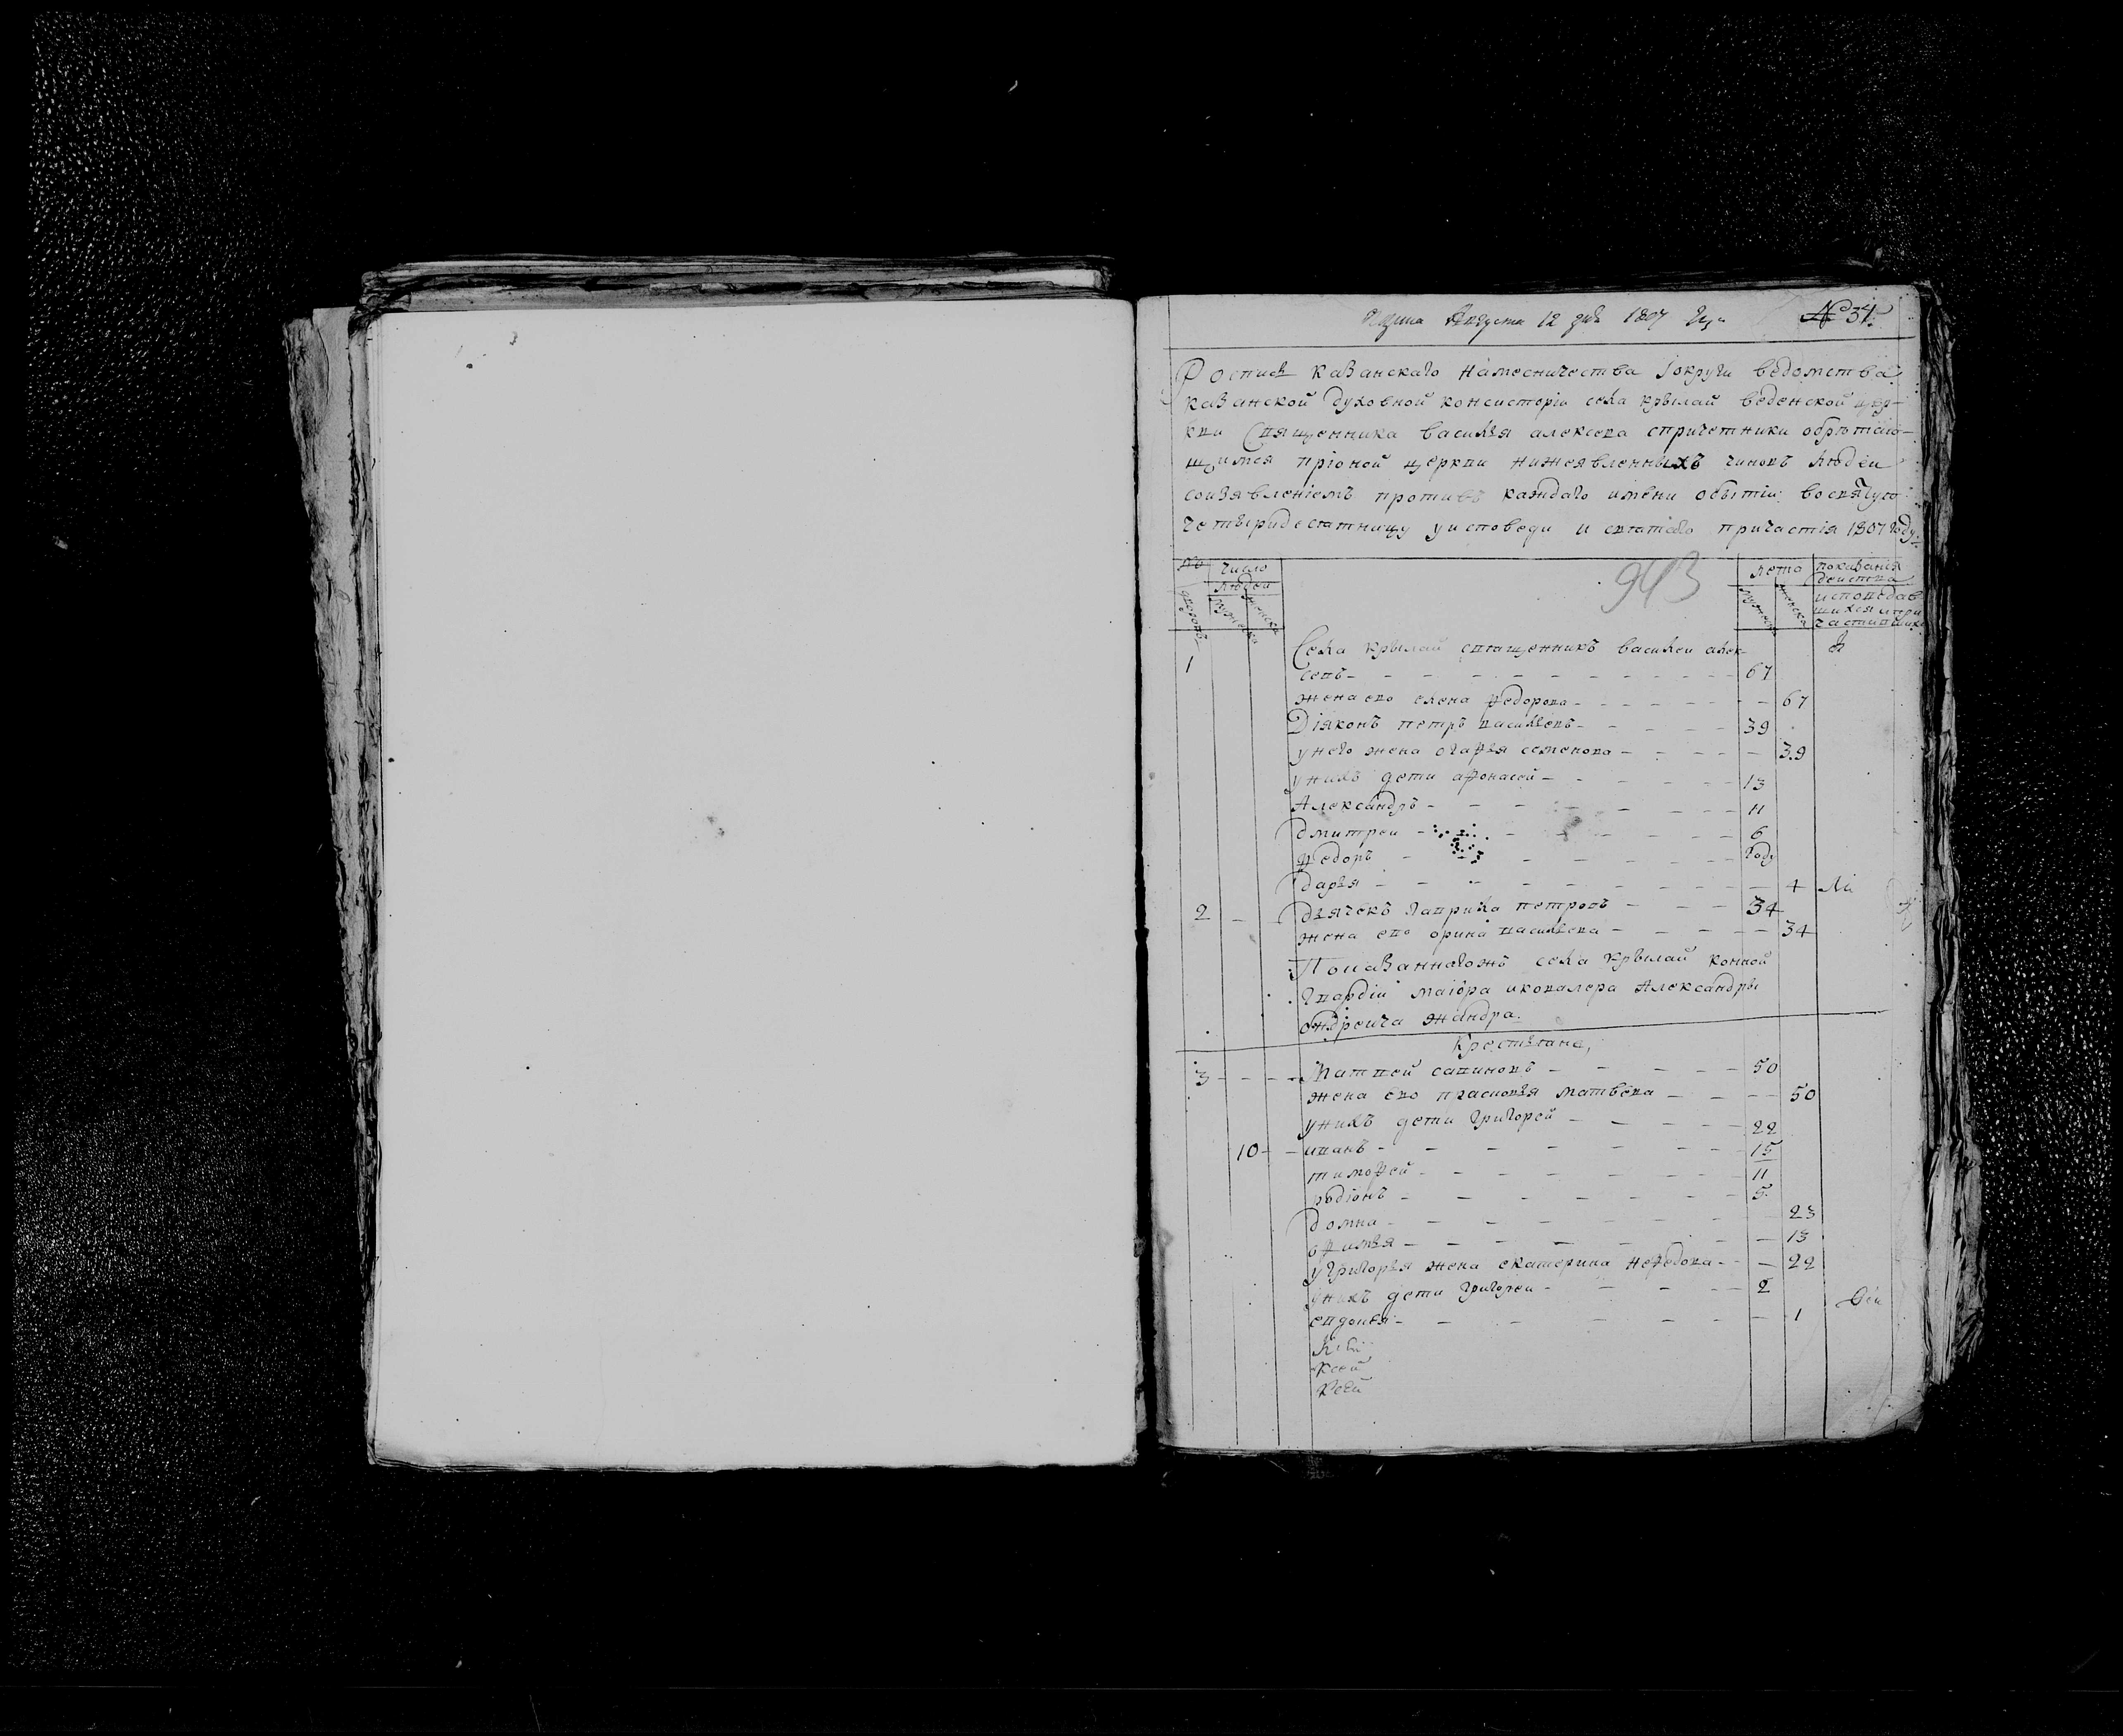 Августа 12 дня 1807 году № 34
Роспись казанскаго намесничества і округи ведомства
казанской духовной консисторіи села крылай веденской цер-
кви священника василья алексева спричетники обретаю-
щимся пріоной церкви нижеявленныхъ чиновъ людеи
соизявленіемъ противъ каждаго имени обытіи восвятую
четыридесятницу уисповеди и святаго причастія 1807 году
943
№ дворовъ
число людеи
мужеска
женска
лета
мужеска
женска
показанія
действа
исповедав
шихся и при
частившихся
1 Села крылай священникъ василеи алек-
сеевъ 67
жена ево елена федорова 67
Діяконъ петръ васильевъ 39
унего жена огафья семенова 39
унихъ дети афонасей 13
Александръ 11
дмитреи 6
федоръ году
дарья 4
2 дьячекъ гаврила петровъ 34
жена ево орина васильева 34
Показаннагожъ села крылай конной
гвардіи маіора иковалера Александры
ондреича жандра
крестьяне
3 Матвей савиновъ 50
жена ево прасковья матвева 50
унихъ дети григорей 22
10 иванъ 15
тимофей 11
родіонъ 5
домна 23
офимья 13
угригорья жена екатерина нефедова 22
унихъ дети григореи 2
евдокея 1